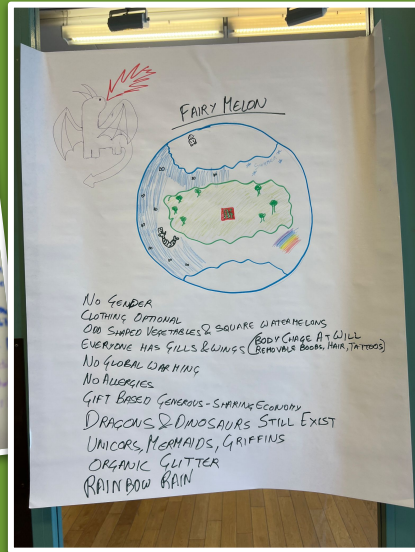 FAIRY MELON
NO GENDER
CLOTHING OPTIONAL
ODD SHAPED VEGETABLES & SQUARE WATERMELONS
EVERYONE HAS GILLS & WINGS (BODY CHAGE AT WILL
REMOVABLE BOOBS, HAIR, TATTOOS)
NO GLOBAL WARMING
NO ALLERGIES
GIFT BASED GENEROUS-SHARING ECONOMY
DRAGONS & DINOSAURS STILL EXIST
UNICORS, MERMAIDS, GRIFFINS
ORGANIC GLITTER
RAINBOW RAIN